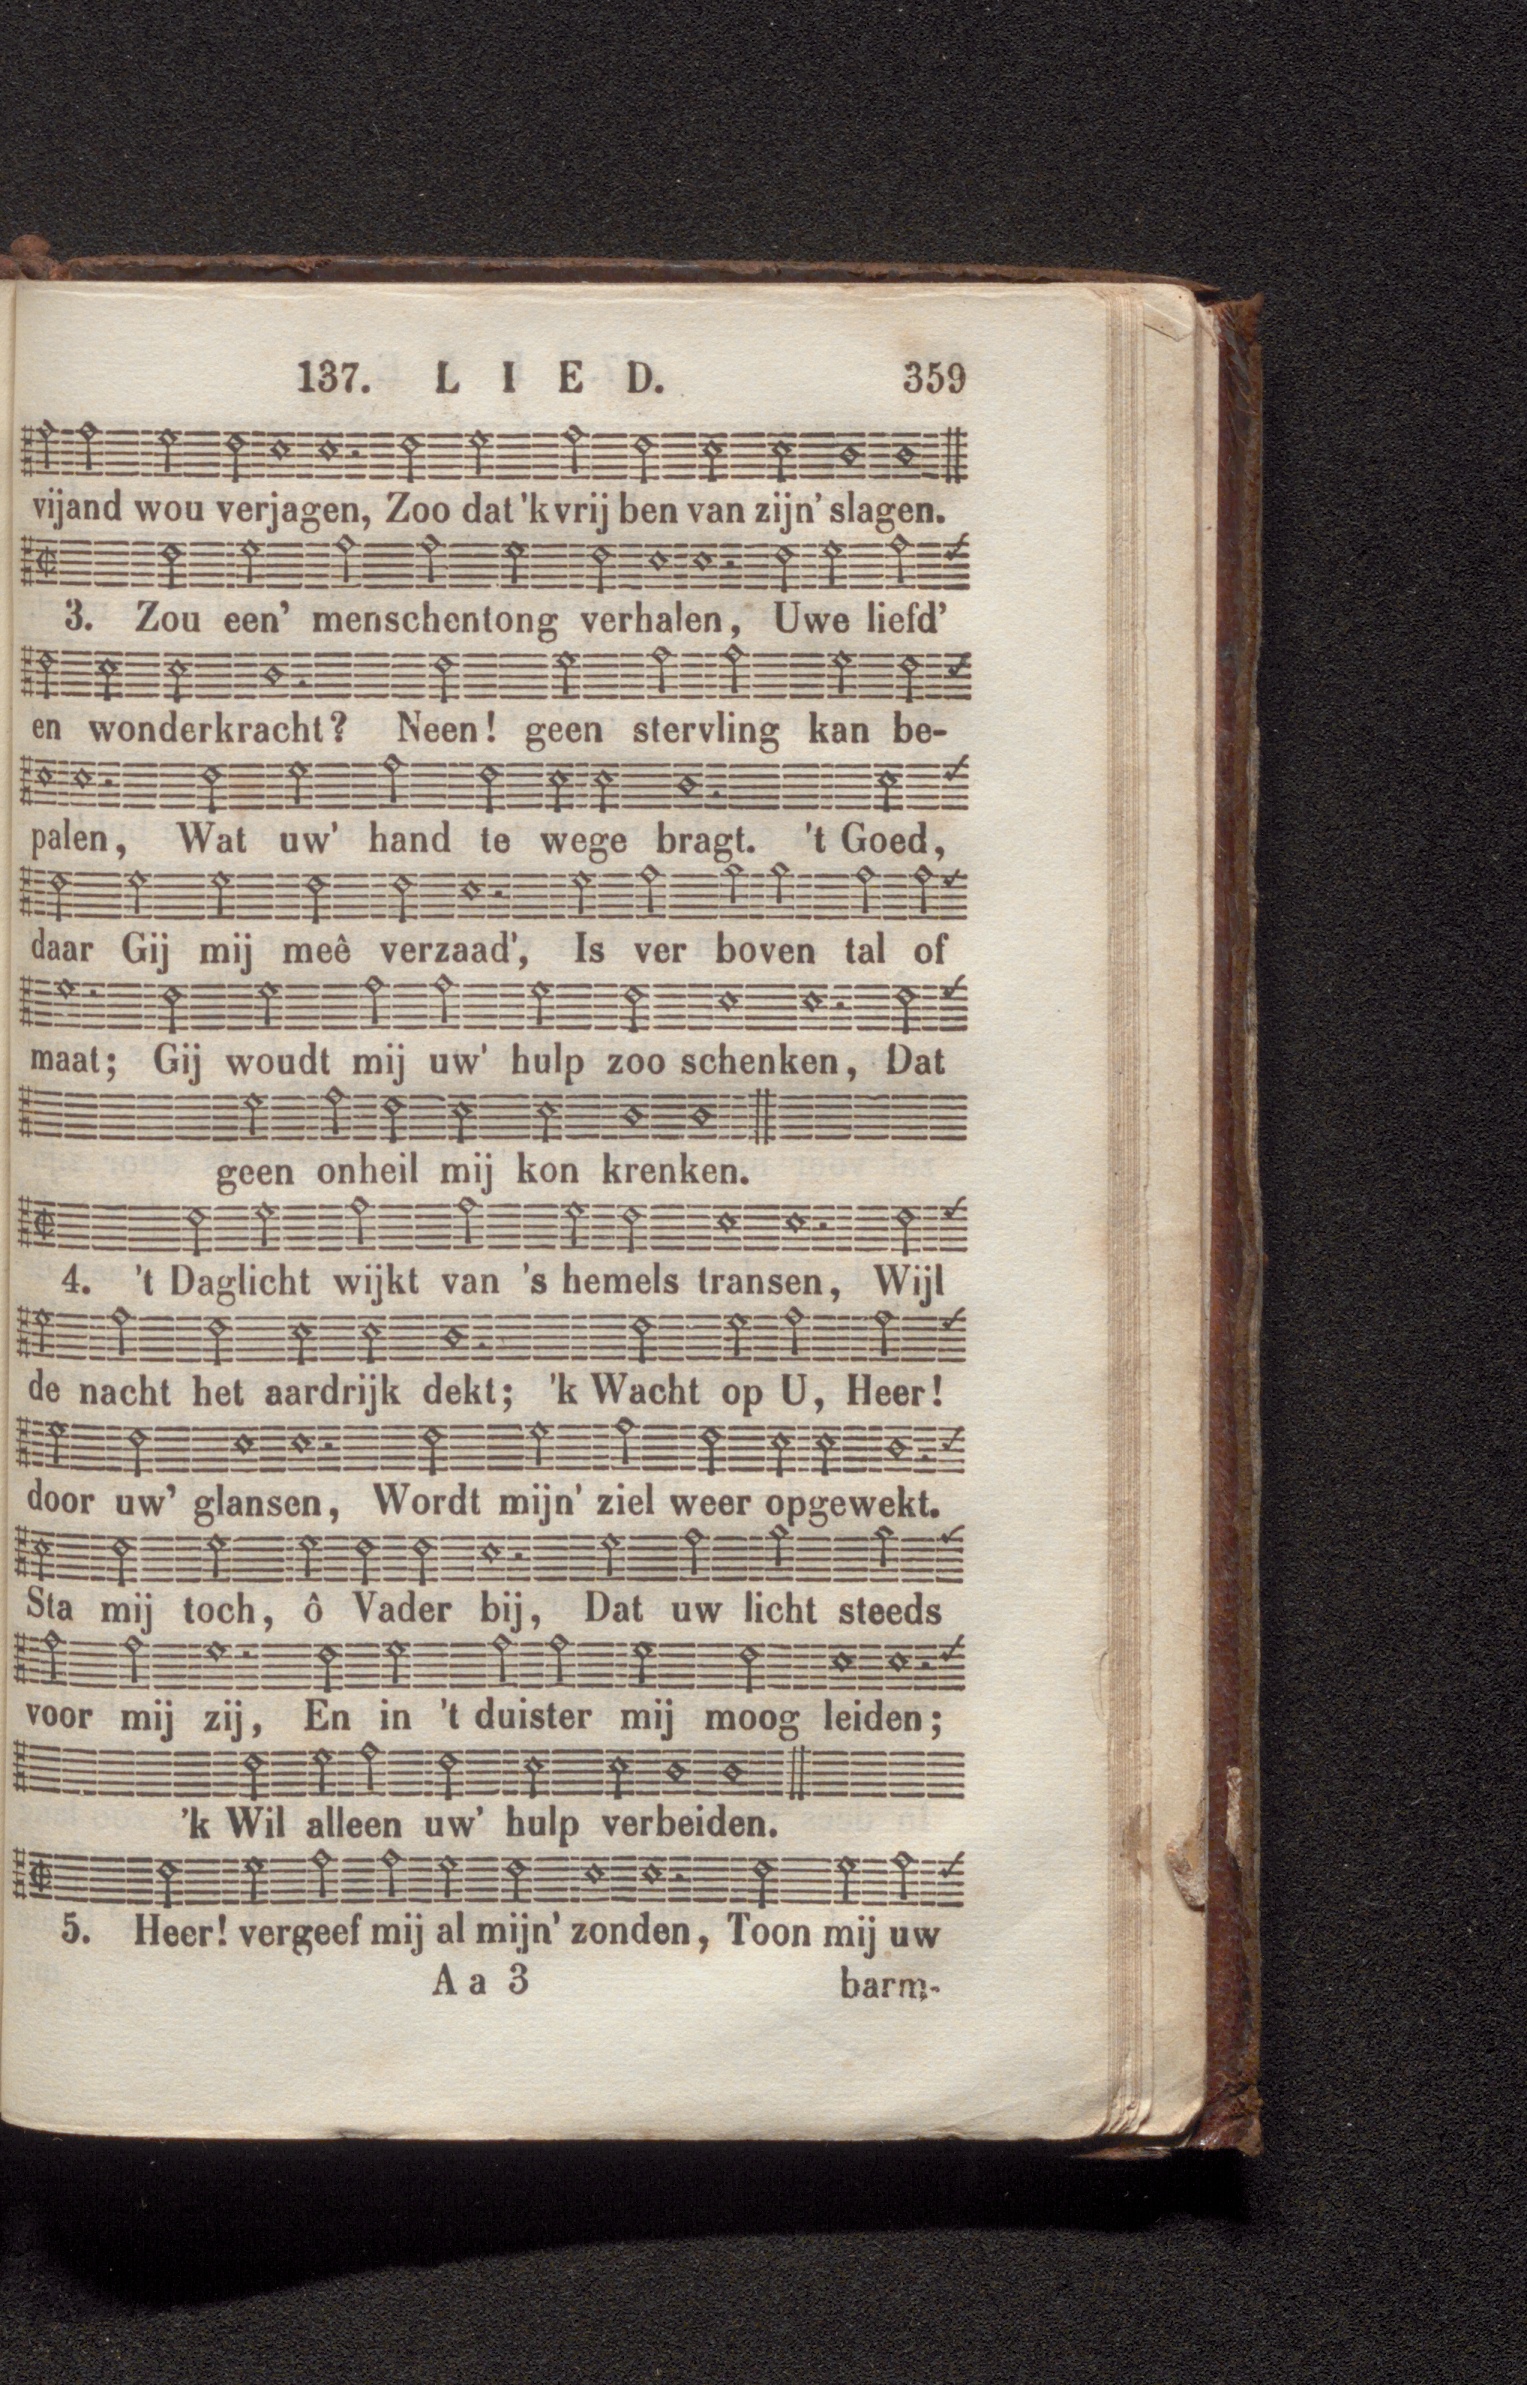 137. L I E D. 359
vijand wou verjagen, Zoo dat 'k vrij ben van zijn' slagen.
3. Zou een' menschentong verhalen, Uwe liefd'
en wonderkracht? Neen! geen stervling kan be-
palen, Wat uw' hand te wege bragt. 't Goed,
daar Gij mij meê verzaad', Is ver boven tal of
maat; Gij woudt mij uw' hulp zoo schenken, Dat
geen onheil mij kon krenken.
4. 't Daglicht wijkt van 's hemels transen, Wijl
de nacht het aardrijk dekt; 'k Wacht op U, Heer!
door uw' glansen, Wordt mijn' ziel weer opgewekt.
Sta mij toch, ô Vader bij, Dat uw licht steeds
voor mij zij, En in 't duister mij moog leiden;
'k Wil alleen uw' hulp verbeiden.
5. Heer! vergeef mij al mijn' zonden, Toon mij uw
A a 3 barm-